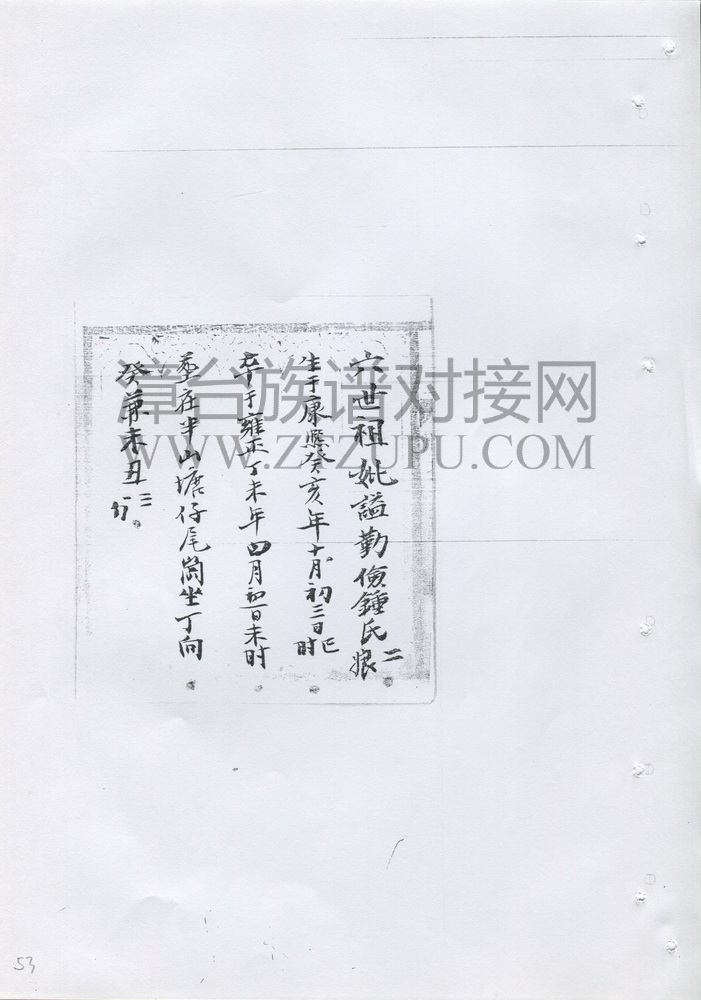 六世祖妣謚勤儉鍾氏二娘
生于康熙癸亥年十月初三日巳时
卒于雍正丁未年四月初一日未时
塟在半山塘仔尾崗坐丁向
癸兼未丑三分
漳台族谱对接网
WWW.ZTZUPU.COM
53